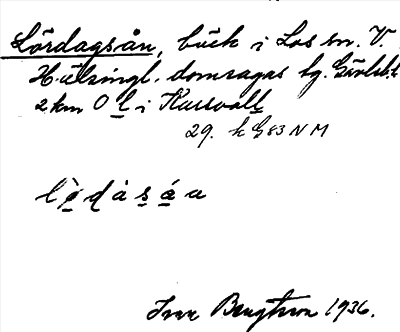 Lördagsån, bäck i Los sn. V.
Hälsingl. domsagas tg. Gävlsb.l.
2 km O l i Kussvall
29. k G 83 NM
lø̀dàsáu
Ivar Bengtsson 1936.